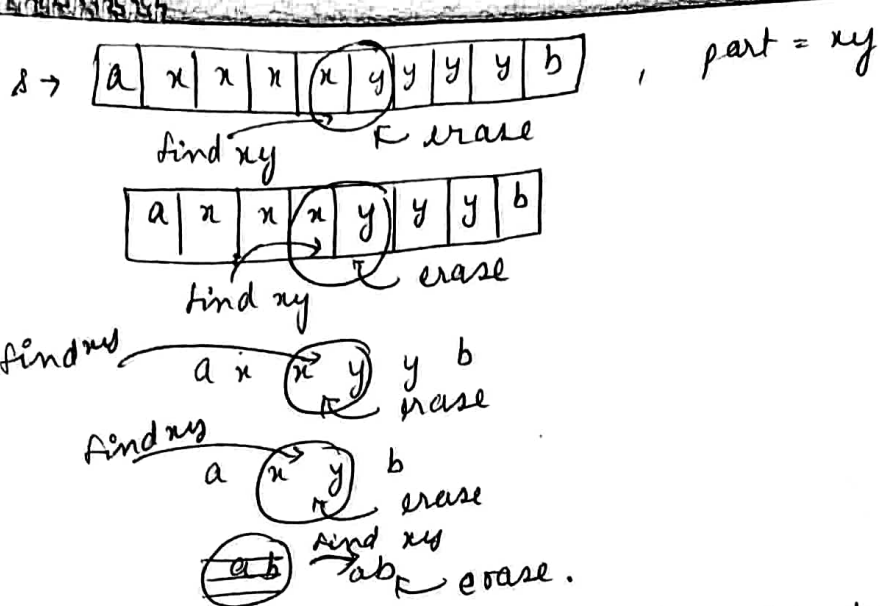 s → a x x x x y y y y b , part = xy
find xy erase
a x x x y y y b
find xy erase
find xy a x x y y b
erase
find xy
a x y b
erase
find xy
ab → ab erase.